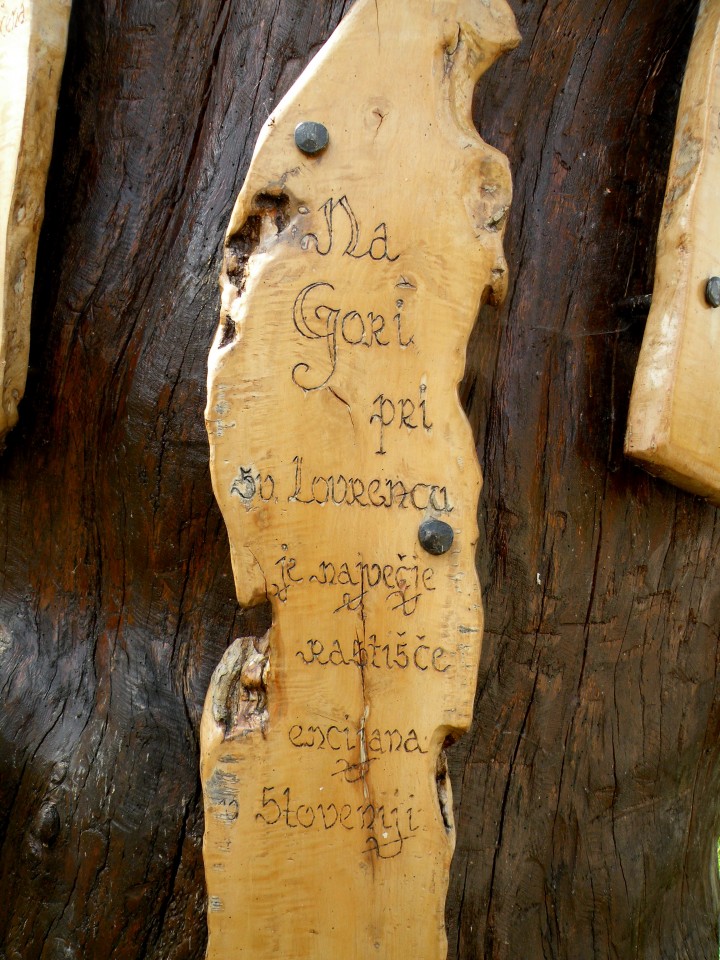 Na
Gori
pri
Sv. Lovrencu
je največje
rastišče
encijana
v Sloveniji